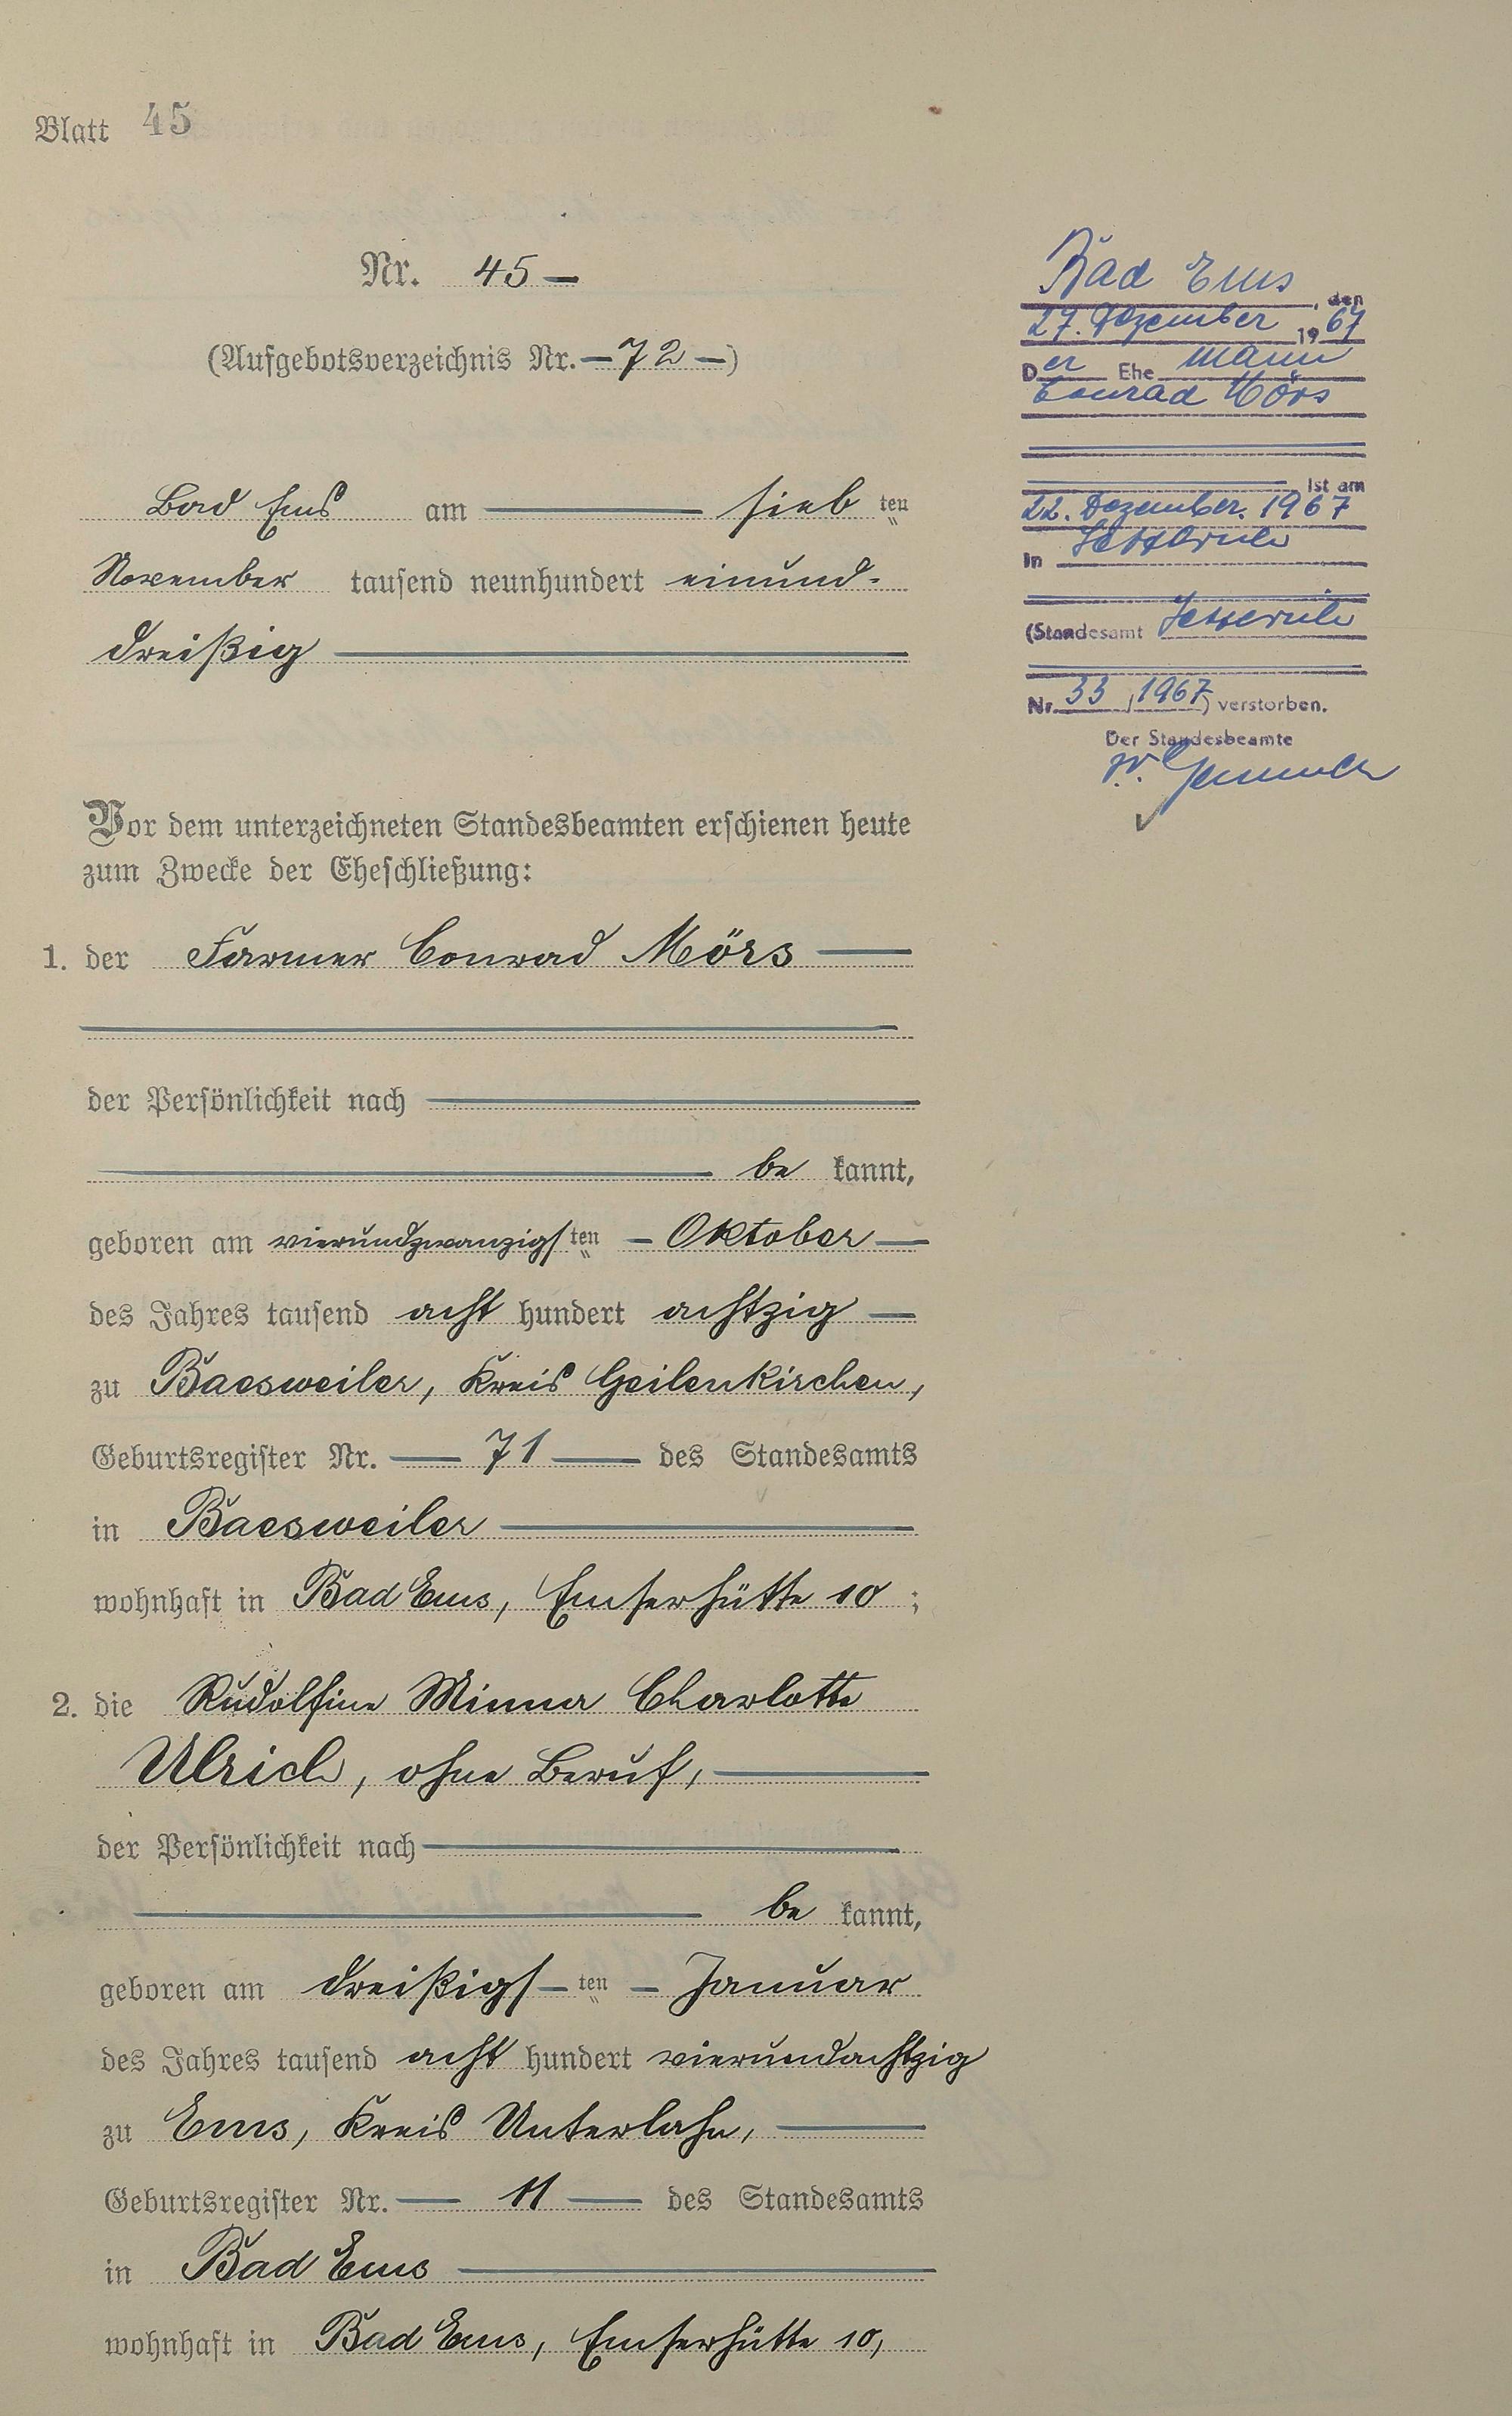 Blatt 45
Nr. 45 —
(Aufgebotsverzeichnis Nr. — 72 —)
Bad Ems am — sieb ten
November tausend neunhundert einund-
dreißig —
Vor dem unterzeichneten Standesbeamten erschienen heute
zum Zwecke der Eheschließung:
1. der Farmer Conrad Mörs —
der Persönlichkeit nach —
— be kannt,
geboren am vierundzwanzigs ten — Oktober —
des Jahres tausend acht hundert achtzig —
zu Baesweiler, Kreis Geilenkirchen,
Geburtsregister Nr. — 71 — des Standesamts
in Baesweiler —
wohnhaft in Bad Ems, Emserhütte 10 ;
2. die Rudolfine Minna Charlotte
Ulrich, ohne Beruf, —
der Persönlichkeit nach —
— be kannt,
geboren am dreißigs — ten — Januar
des Jahres tausend acht hundert vierundachtzig
zu Ems, Kreis Unterlahn, —
Geburtsregister Nr. — 11 — des Standesamts
in Bad Ems —
wohnhaft in Bad Ems, Emserhütte 10,
Bad Ems, den
27. Dezember 1967
Der Ehe mann
Conrad Mörs
ist am
22. Dezember 1967
in
(Standesamt
Nr. 33 / 1967) verstorben.
Der Standesbeamte